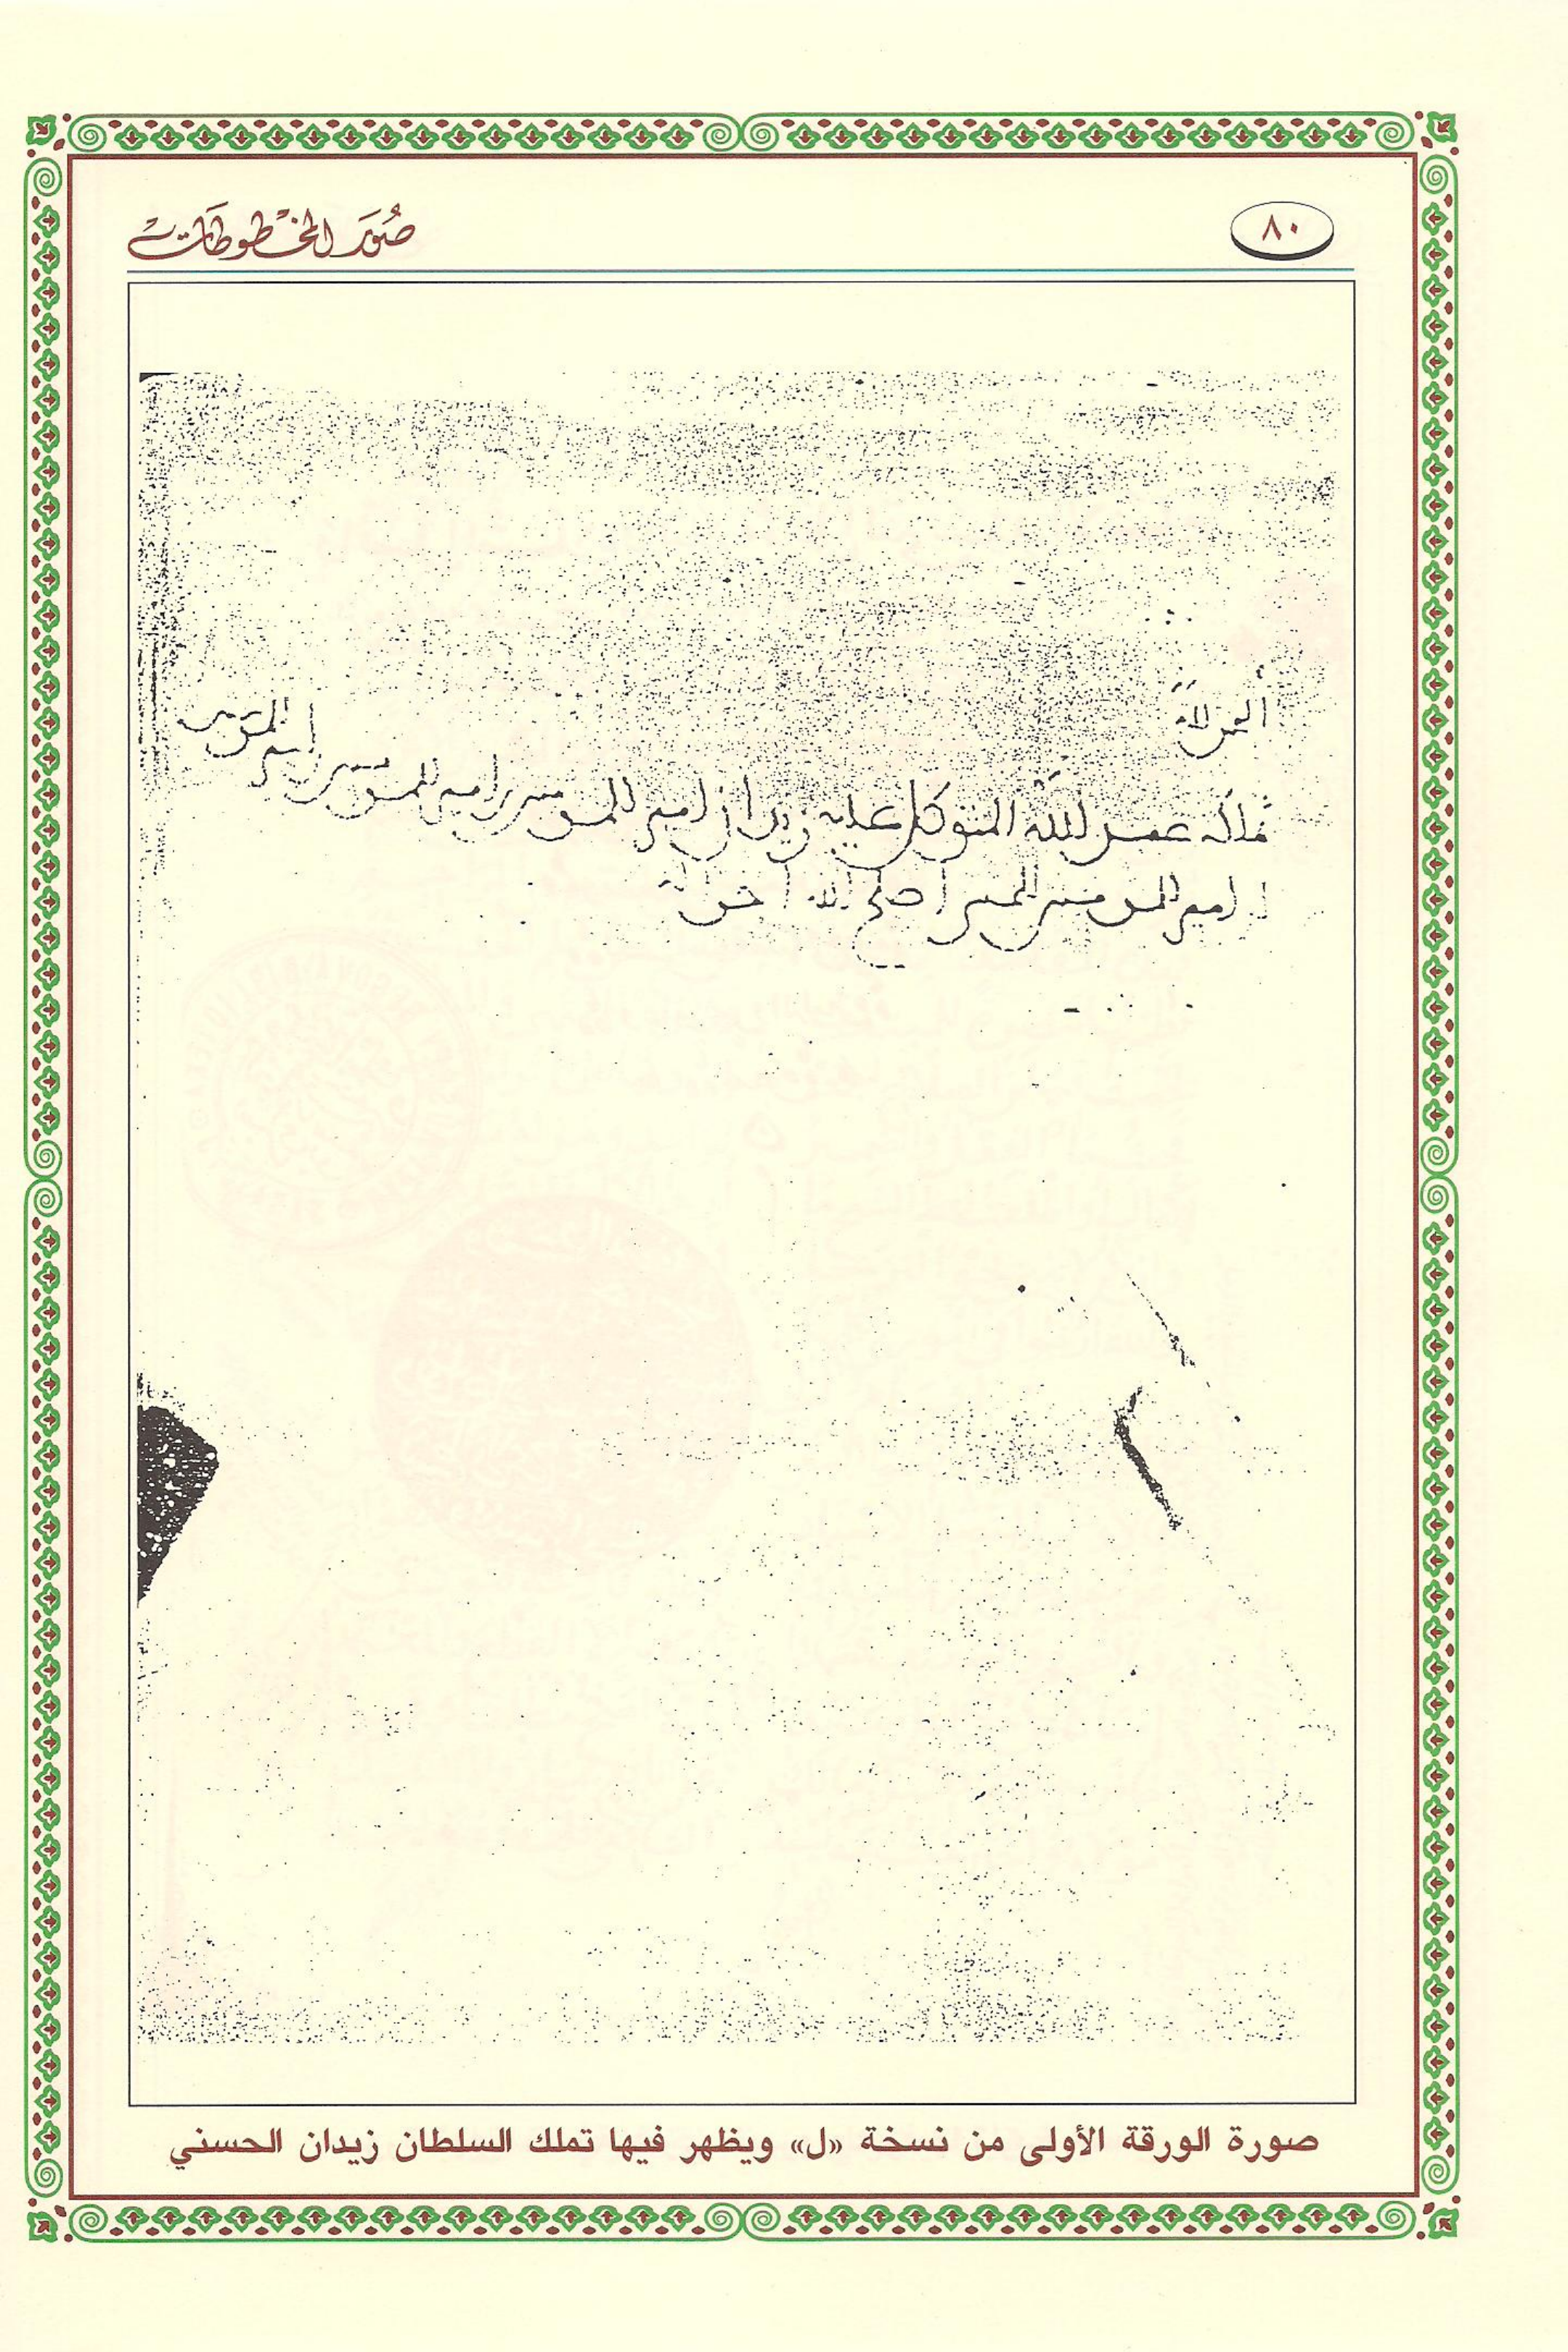 صُوَر المخْطوطَات
٨٠
الحمد لله
تملكه عبد الله المتوكل عليه زيدان امير المومنين بن امير المومنين بن امير المومنين
امير المومنين الحسني
صورة الورقة الأولى من نسخة «ل» ويظهر فيها تملك السلطان زيدان الحسني